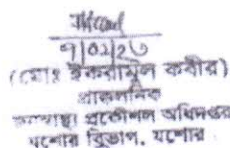 ৭|০১|২৬
(মোঃ ইকরামুল কবীর)
প্রাক্কলনিক
জনস্বাস্থ্য প্রকৌশল অধিদপ্তর
যশোর বিভাগ, যশোর